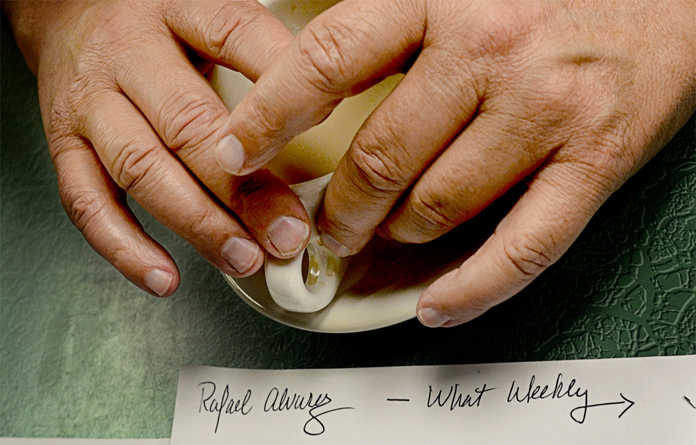 Rafael Alvarez — What Weekly →